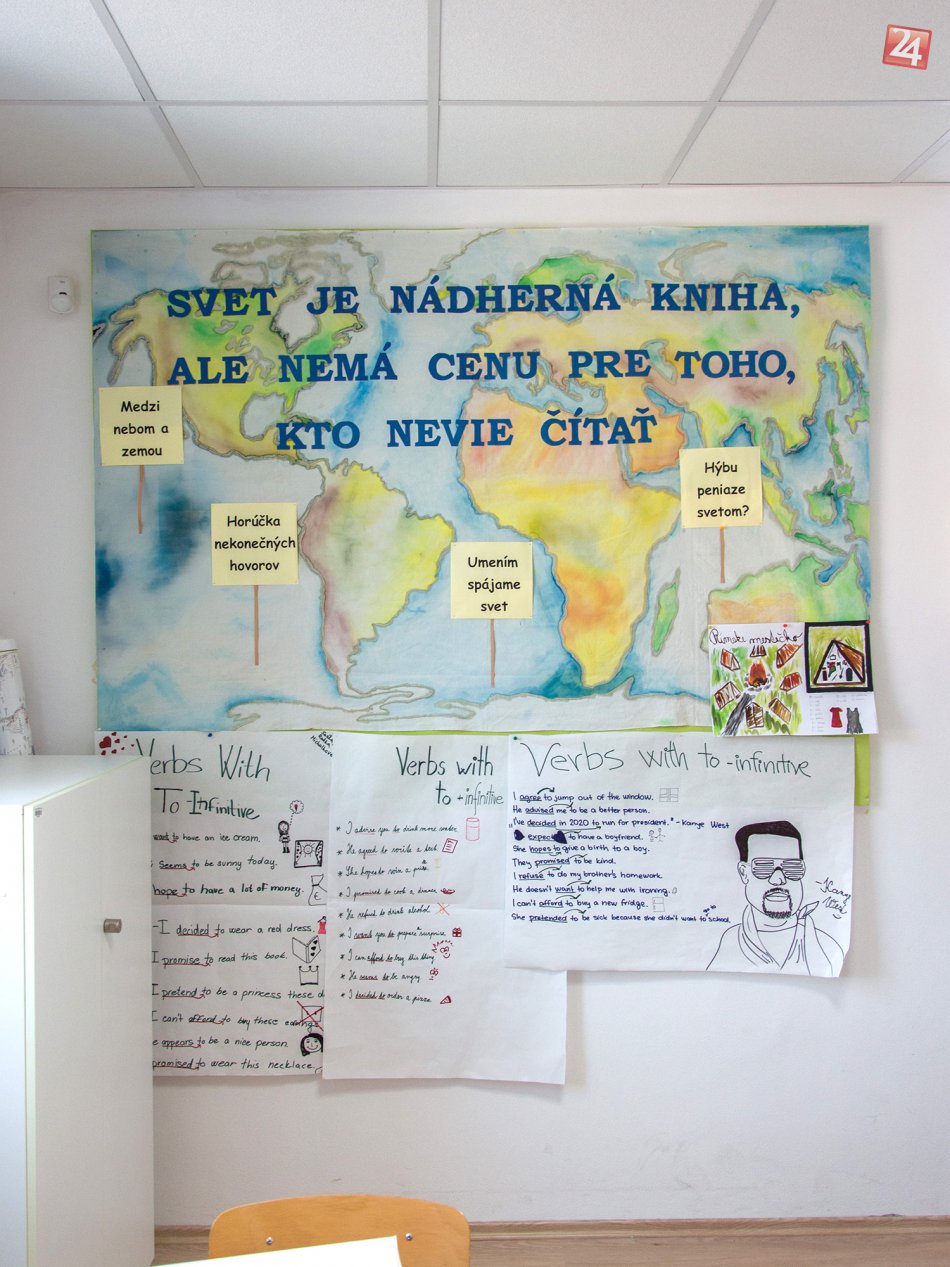 24
SVET JE NÁDHERNÁ KNIHA,
ALE NEMÁ CENU PRE TOHO,
KTO NEVIE ČÍTAŤ
Medzi
nebom a
zemou
Horúčka
nekonečných
hovorov
Umením
spájame
svet
Hýbu
peniaze
svetom?
Rómske mestečko
Verbs With
To-Infinitive
want to have an ice cream.
seems to be sunny today.
hope to have a lot of money.
-I decided to wear a red dress.
I promise to read this book.
I pretend to be a princess these d
I can't afford to buy these earings
e appears to be a nice person.
promised to wear this necklace.
Verbs with
to +infinitive
* I advise you to drink more water.
* He agreed to write a test.
* She hopes to win a prize.
* I promised to cook a dinner.
* He refused to drink alcohol.
* I want you to prepare a surprise.
* I can afford to buy this thing
* He seems to be angry.
* I decided to order a pizza.
Verbs with to -infinitive
I agree to jump out of the window.
He advised me to be a better person.
"I've decided in 2020 to run for president." - Kanye West
expect to have a boyfriend.
She hopes to give a birth to a boy.
They promised to be kind.
I refuse to do my brother's homework.
He doesn't want to help me with ironing.
I can't afford to buy a new fridge.
She pretended to be sick because she didn't want to go to school.
-Kanye
West